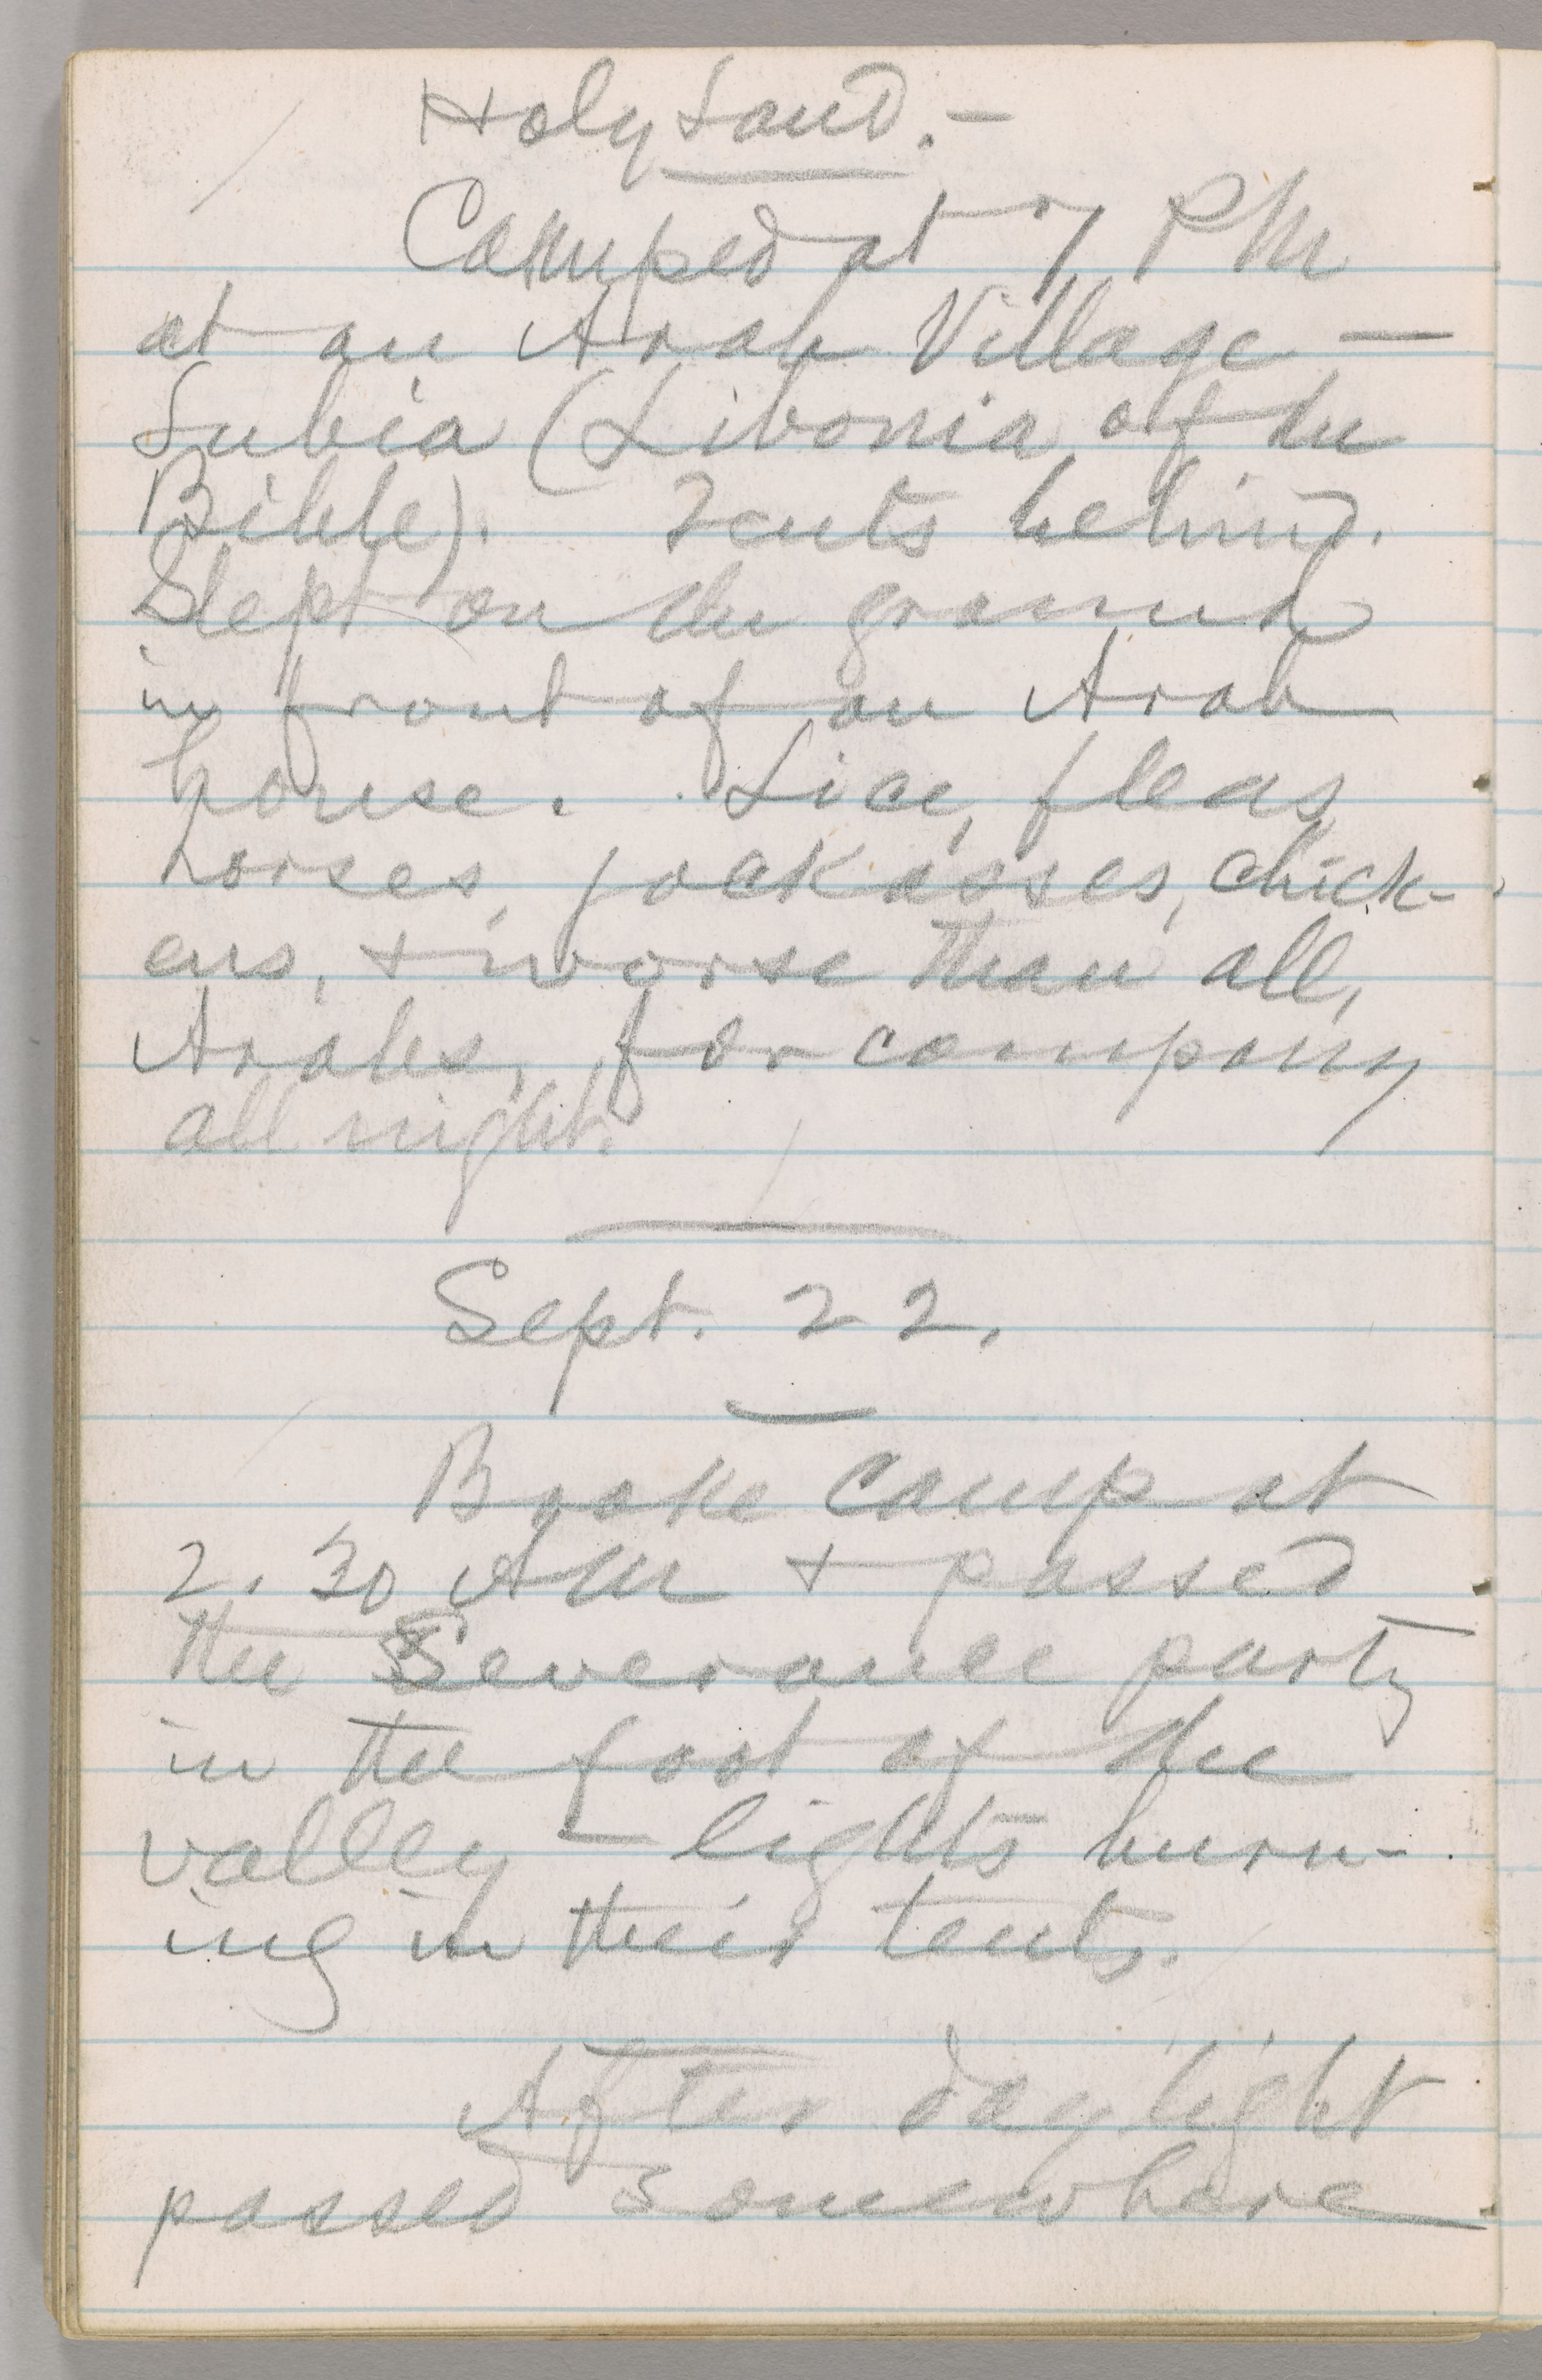 Holy Land.-
Camped at 7 PM
at an Arab Village -
Lubia (Libonia of the
Bible). Tents behind.
Slept on the ground
in front of an Arab
house. Lice, fleas,
horses, jackasses, chick-
ens, + worse than all,
Arabs, for company
all night.
Sept. 22.
Broke Camp at
2.30 AM + passed
the Severance party
in the foot of the
valley - lights burn-
ing in their tents.
After daylight
passed somewhere